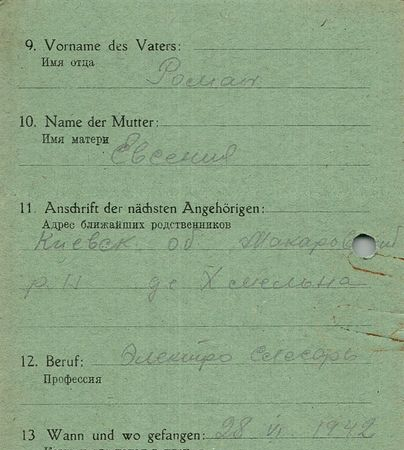 9. Vorname des Vaters:
Имя отца
Роман
10. Name der Mutter:
Имя матери
Евсения
11. Anschrift der nächsten Angehörigen:
Адрес ближайших родственников
Киевск об Макаровский
р. н де Хмельна
12. Beruf: Электро слесарь
Профессия
13 Wann und wo gefangen: 28 VI 1942